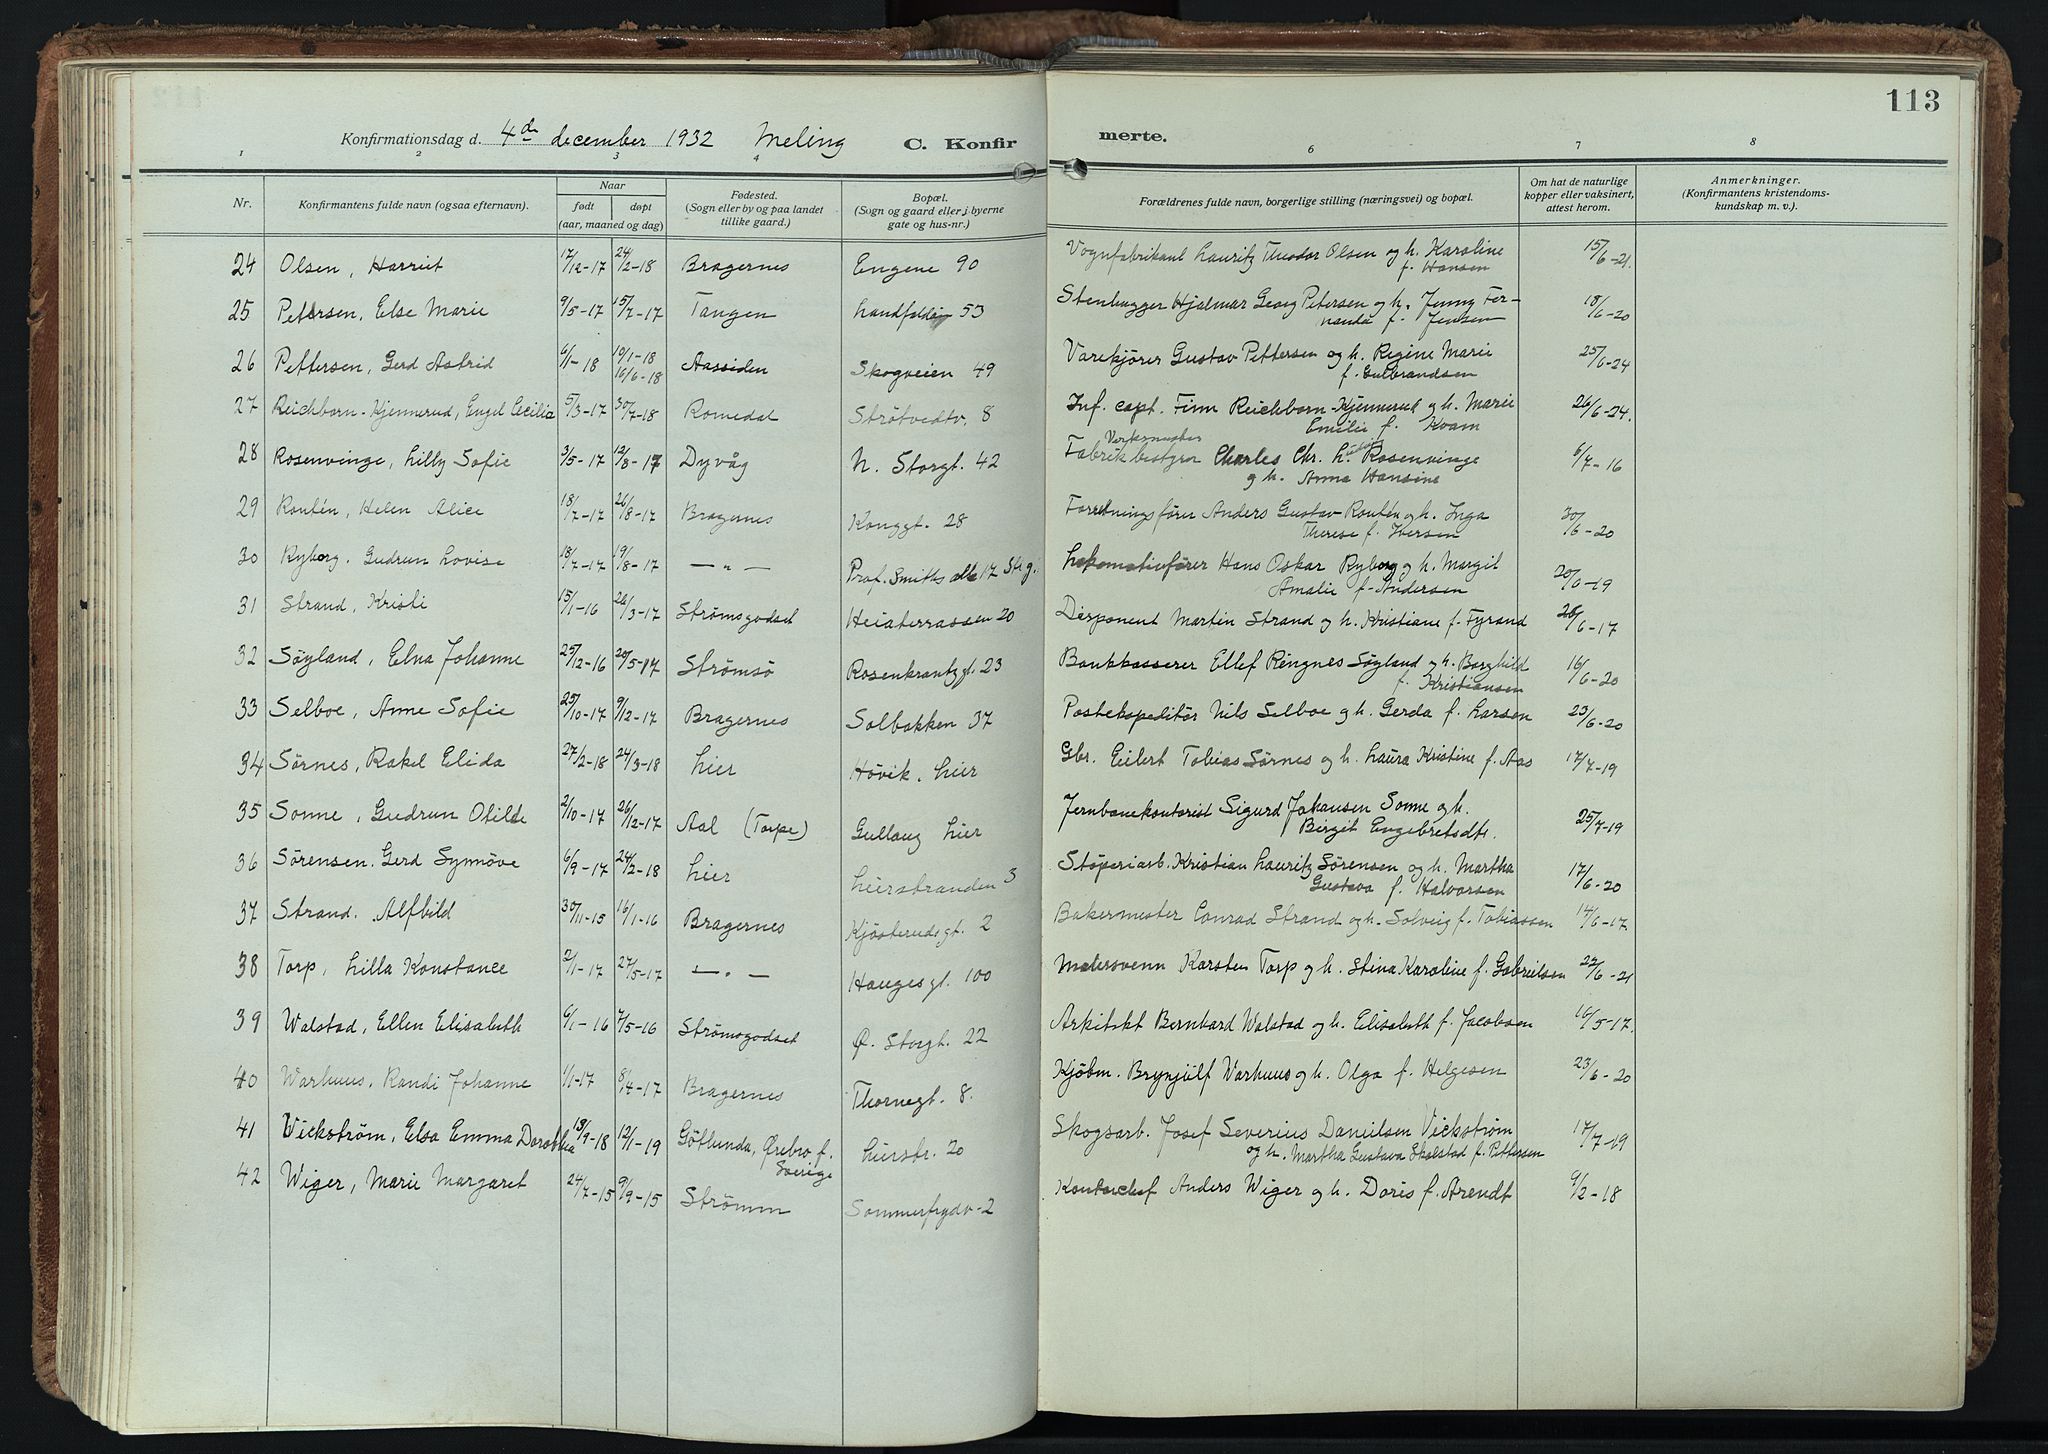 113
Konfirmationsdag d. 4de december 1932 Meling C. Konfir merte.
1 2 3 4 6 7 8
Nr. Konfirmantens fulde navn (ogsaa efternavn). Naar Fødested. Bopæl. Forældrenes fulde navn, borgerlige stilling (næringsvei) og bopæl. Om hat de naturlige Anmerkninger.
født døpt (Sogn eller by og paa landet (Sogn og gaard eller i byerne kopper eller vaksinert, (Konfirmantens kristendoms-
(aar, maaned og dag) tillike gaard.) gate og hus-nr.) attest herom. kundskap m. v.).
24 Olsen, Harriet 17/12-17 24/2-18 Bragernes Engene 90 Vognfabrikant Lauritz Theodor Olsen og h. Karoline 15/6-21.
f. Hansen
25 Petersen, Else Marie 9/5-17 15/7-17 Tangen Landfalløien 53 Stenhugger Hjalmar Georg Petersen og h. Jenny Fer- 18/6-20
nanda f. Jensen
26 Pettersen, Gerd Astrid 6/1-18 10/1-18 Aassiden Skogveien 49 Varekjører Gustav Pettersen og h. Regine Marie 25/6-24
16/6-18 f. Gulbrandsen
27 Reichborn-Kjennerud, Engel Cecilia 5/3-17 30/7-18 Romedal Strøtvedtv. 8 Inf. capt. Finn Reichborn-Kjennerud og h. Marie 26/6-24.
Emilie f. Kvam
28 Rosenvinge, Lilly Sofie 3/5-17 12/8-17 Dyvåg N. Storgt. 42 Verksmester
Fabrikbestyrer Charles Chr. Rosenvinge 6/7-16
og h. Anna Hansine
29 Routén, Helen Alice 18/7-17 26/8-17 Bragernes Konggt. 28 Forretningsfører Anders Gustav Routén og h. Inga 30/6-20
Therese f. Iversen
30 Ryborg, Gudrun Lovise 18/7-17 19/8-17 — " — Prof. Smiths alle 17 Stg. Lokomotivfører Hans Oskar Ryborg og h. Margit
Amalie f. Andersen
31 Strand, Kristi 15/1-16 26/3-17 Strømsgodset Heiaterrassen 20 Disponent Martin Strand og h. Kristiane f. Fyrand 26/6-17
32 Søyland, Elna Johanne 25/12-16 20/5-17 Strømsø Rosenkrantzgt. 23 Bankkasserer Ellef Ringnes Søyland og h. Borghild 16/6-20
f. Kristiansen
33 Selboe, Anne Sofie 25/10-17 9/12-17 Bragernes Solbakken 37 Postekspeditör Nils Selboe og h. Gerda f. Larsen 23/6-20
34 Sørnes, Rakel Elida 27/2-18 24/3-18 Lier Høvik, Lier Gbr. Eilert Tobias Sørnes og h. Laura Kristine f. Aas 17/7-19
35 Sonne, Gudrun Otilde 2/10-17 26/12-17 Aal (Torpe) Gullaug Lier Jernbanekontorist Sigurd Johansen Sonne og h. 25/7-19
Birgit Engebretsdt.
36 Sørensen, Gerd Synnøve 6/9-17 24/2-18 Lier Lierstranden 3 Støperiarb. Kristian Lauritz Sørensen og h. Martha 17/6-20
Gustava f. Halvorsen
37 Strand. Alfhild 30/11-15 16/1-16 Bragernes Kjøsterudsgt. 2 Bakermester Conrad Strand og h. Solveig f. Tobiassen 14/6-17.
38 Torp, Lilla Konstance 2/1-17 27/5-17 — " — Haugesgt. 100 Malersvenn Karsten Torp og h. Stina Karoline f. Gabrielsen 22/6-21
39 Walstad, Ellen Elisabeth 6/1-16 7/5-16 Strømsgodset Ø. Storgt. 22 Arkitekt Bernhard Walstad og h. Elisabeth f. Jacobsen 16/5-17.
40 Warhuus, Randi Johanne 1/1-17 8/4-17 Bragernes Thornegt. 8. Kjøbm. Brynjulf Warhuus og h. Olga f. Helgesen 23/6-20
41 Vickstrøm, Elsa Emma Dorothea 13/9-18 12/1-19 Götlunda, Ørebro f. Lierstr. 20 Skogsarb. Josef Severius Danielsen Vickstrøm 17/7-19
Sverige og h. Martha Gustava Skalstad f. Pettersen
42 Wiger, Marie Margaret 24/7-15 9/9-15 Strømm Sommerfrydv-2 Kontorchef Anders Wiger og h. Doris f. Arendt 9/2-18